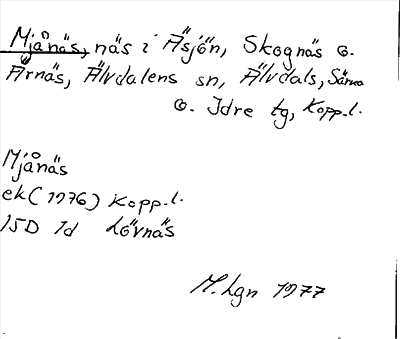 Mjånäs, näs i Äsjön, Skognäs o.
Ärnäs, Älvdalens sn, Älvdals, Särna
o. Idre tg, Kopp.l.
Mjånäs
ek (1976) Kopp.l.
15D 1d Lövnäs
M.Lgn 1977